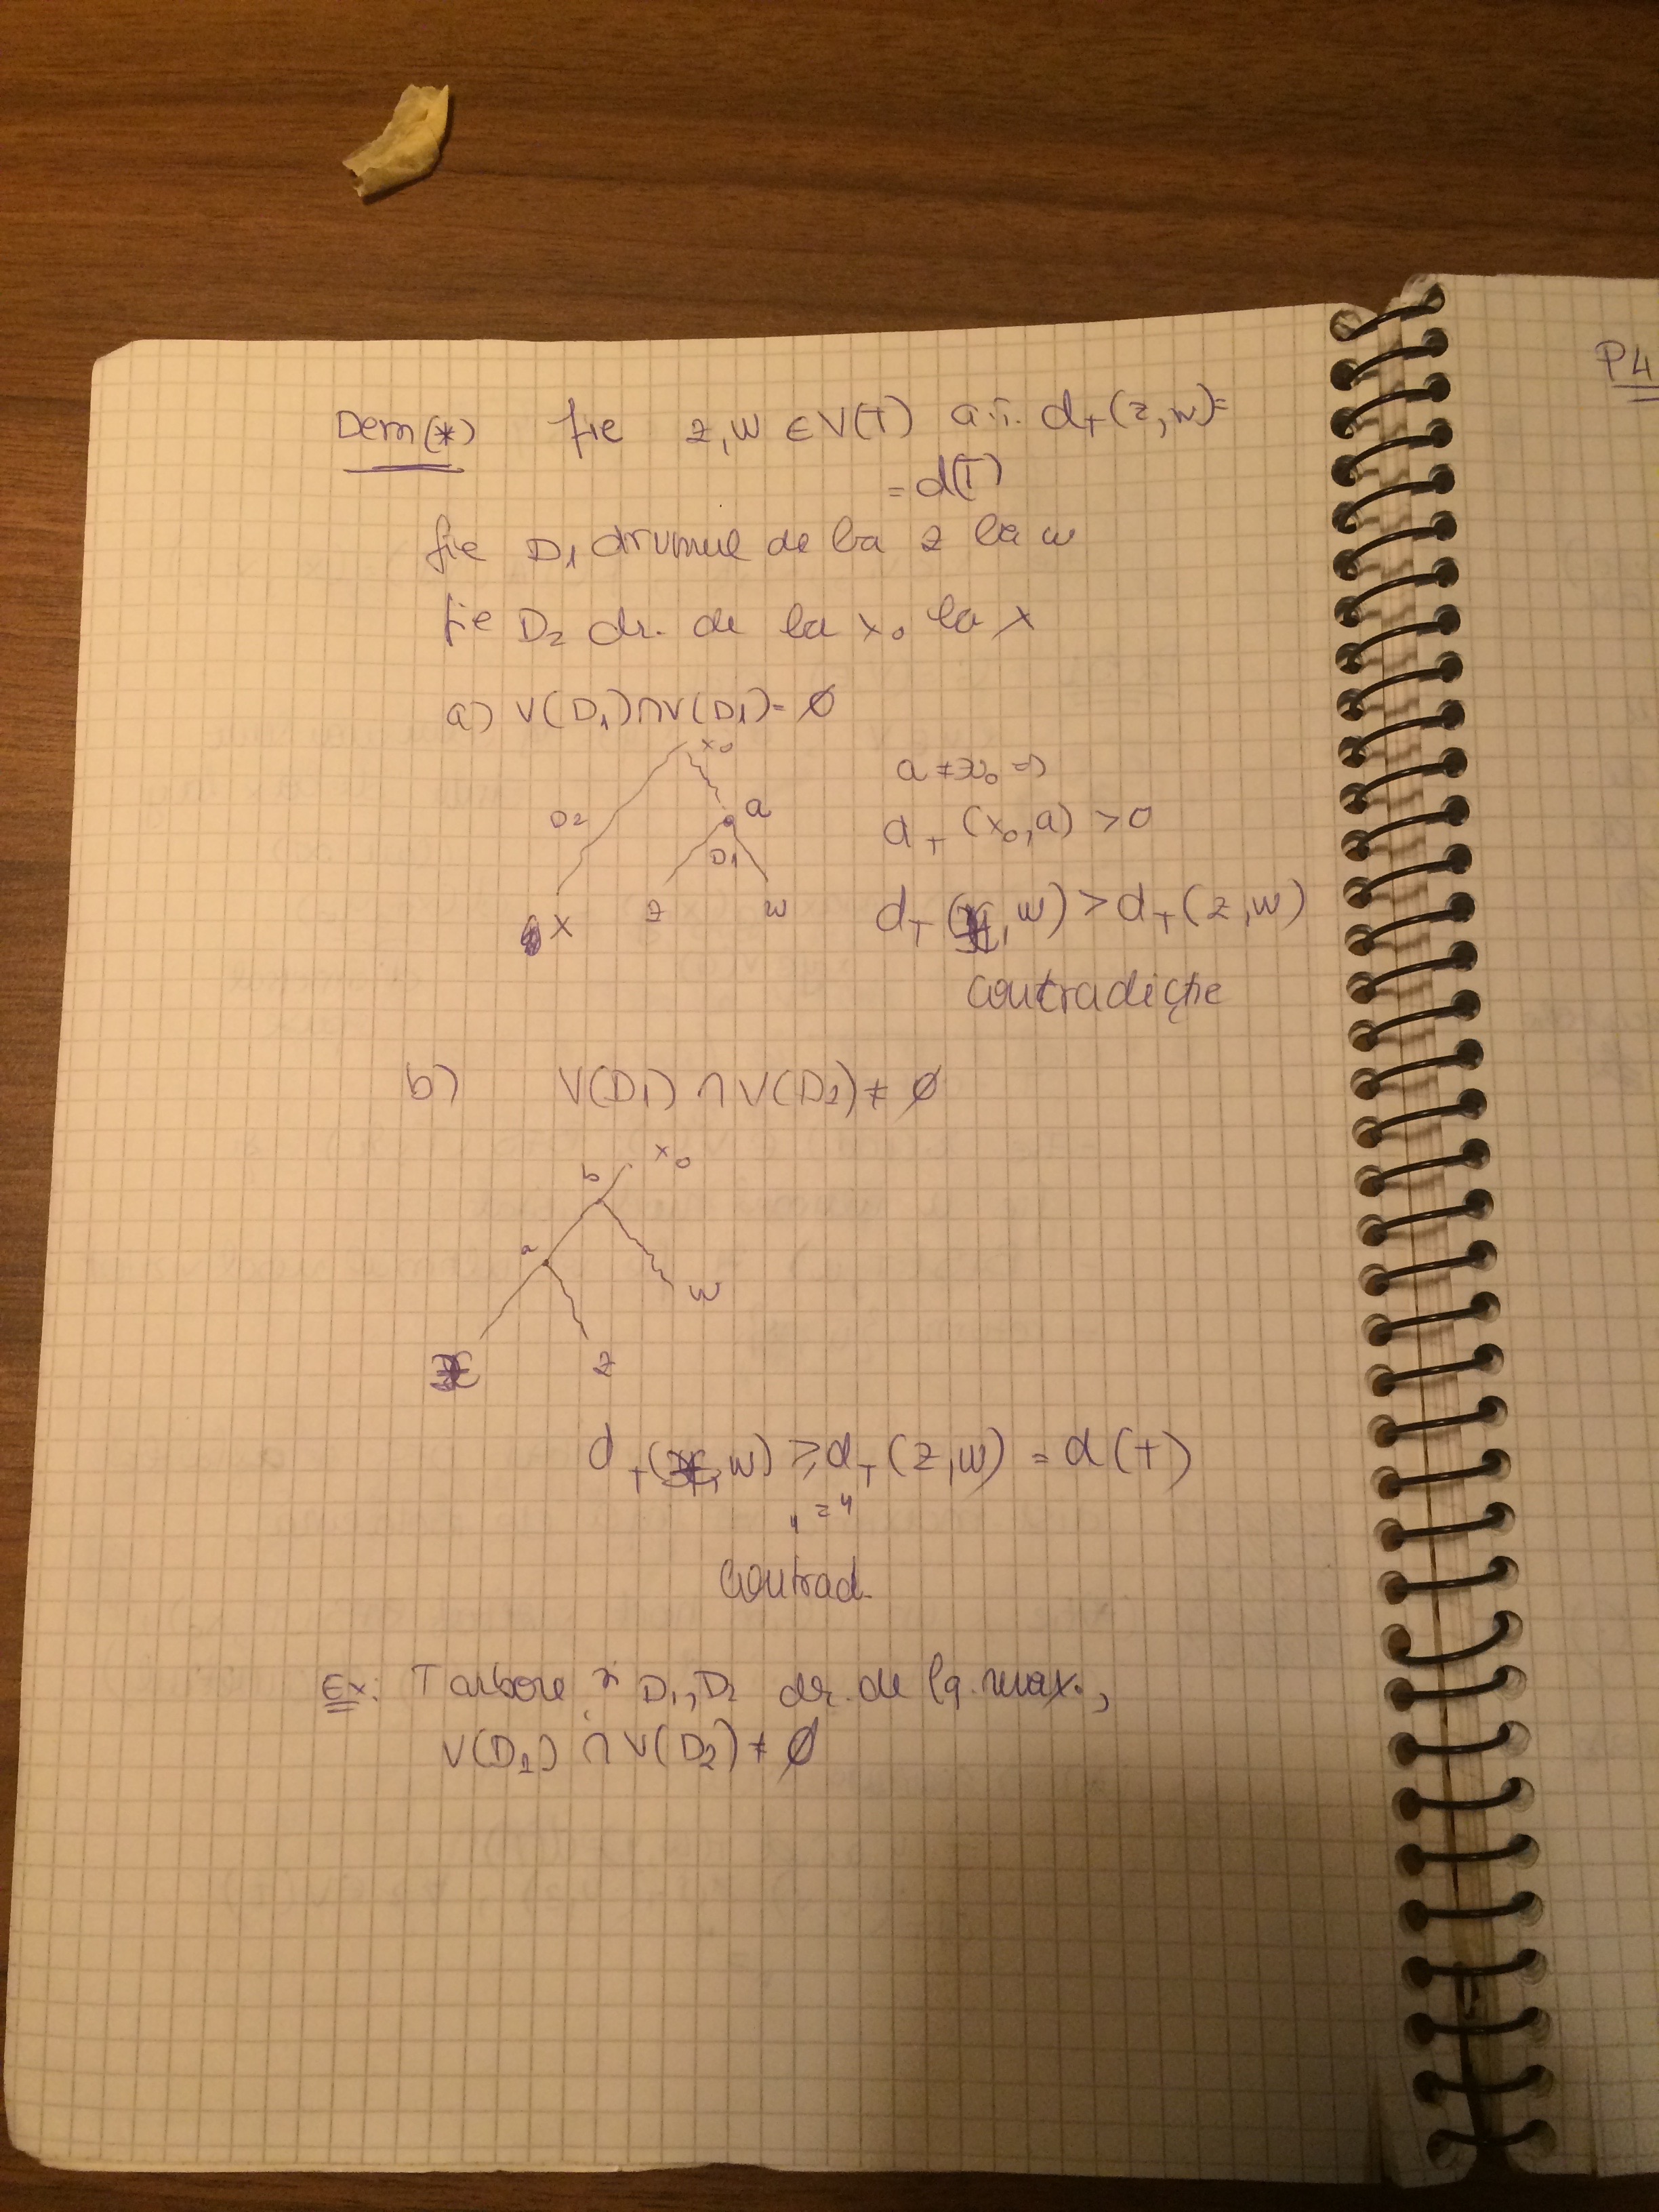 Dem(*) fie z,w ∈ V(T) a.î. d_T(z,w)=
= d(T)
fie D1 drumul de la z la w
fie D2 dr. de la x0 la x
a) V(D1)∩V(D1)=∅
x0
a
D2
D1
x z w
a≠x0 =>
d_T (x0,a) >0
d_T (x,w) > d_T (z,w)
contradicție
b) V(D1) ∩ V(D2) ≠ ∅
x0
b
a
w
x z
d_T(x,w) ≥ d_T (z,w) = d(T)
"="
contrad.
Ex: T arbore și D1,D2 dr. de lg. max.,
V(D1) ∩ V(D2) ≠ ∅
P4